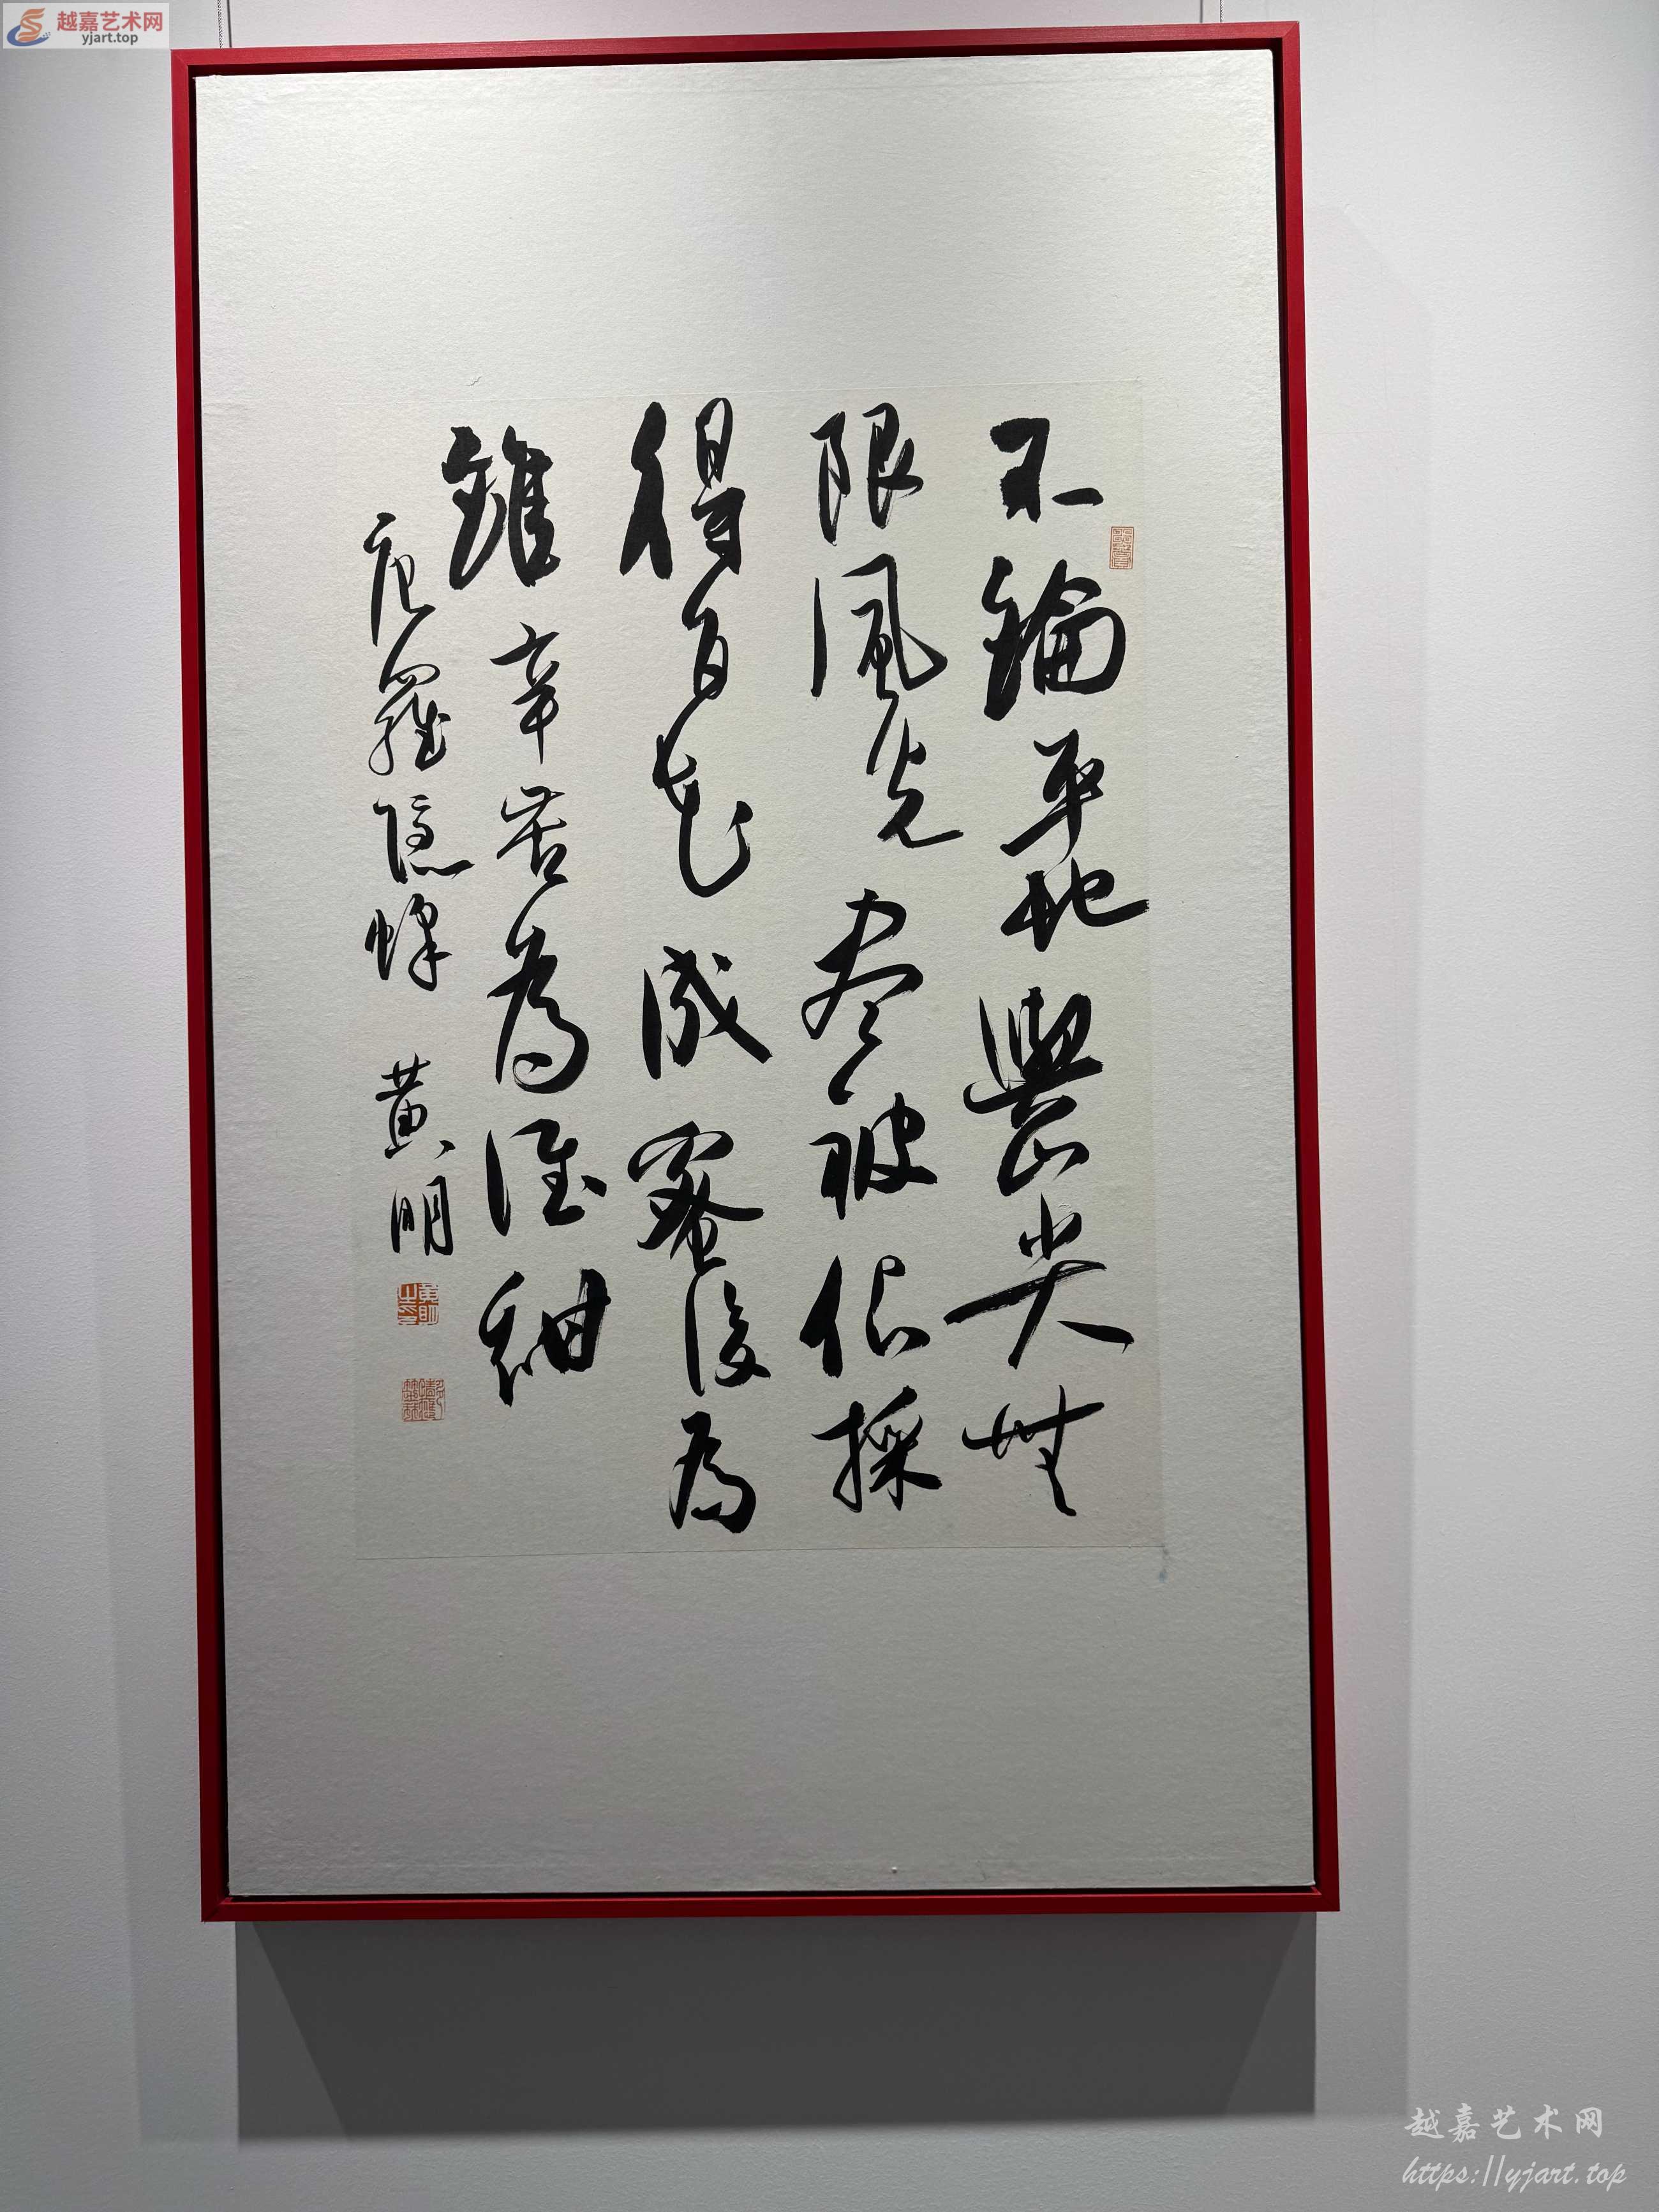 越嘉艺术网
yjart.top
不論平地與山尖無
限風光尽被佔採
得百花成蜜後為
誰辛苦為誰甜
唐羅隱蜂 黃明
越嘉艺术网
https://yjart.top